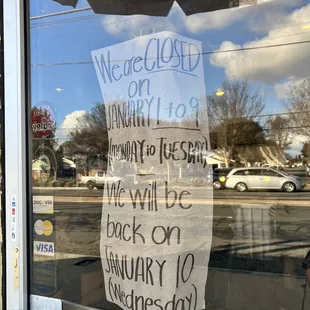 We are CLOSED
on
JANUARY 1 to 9
(MONDAY to TUESDAY)
We will be
back on
JANUARY 10
(Wednesday)
yelp
DISCOVER
VISA